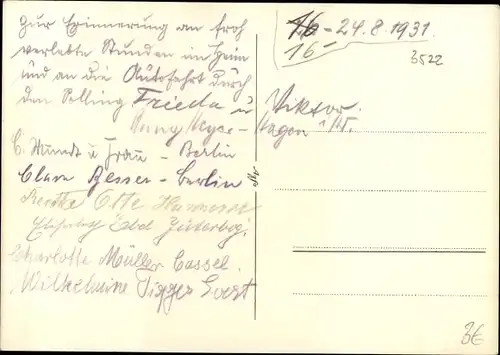 Zur Erinnerung an froh
verlebte Stunden im Heim
und an die Autofahrt durch
den Solling Frieda u Viktor.
Anny Meyer - Hagen i/W.
C. Mundt u Frau - Berlin
Clara Besser - Berlin
Otte Hannover
Elisabeth Jüterbog.
Charlotte Müller Cassel.
Wilhelmine Soest
16 - 24.8.1931
16-
3522
3€